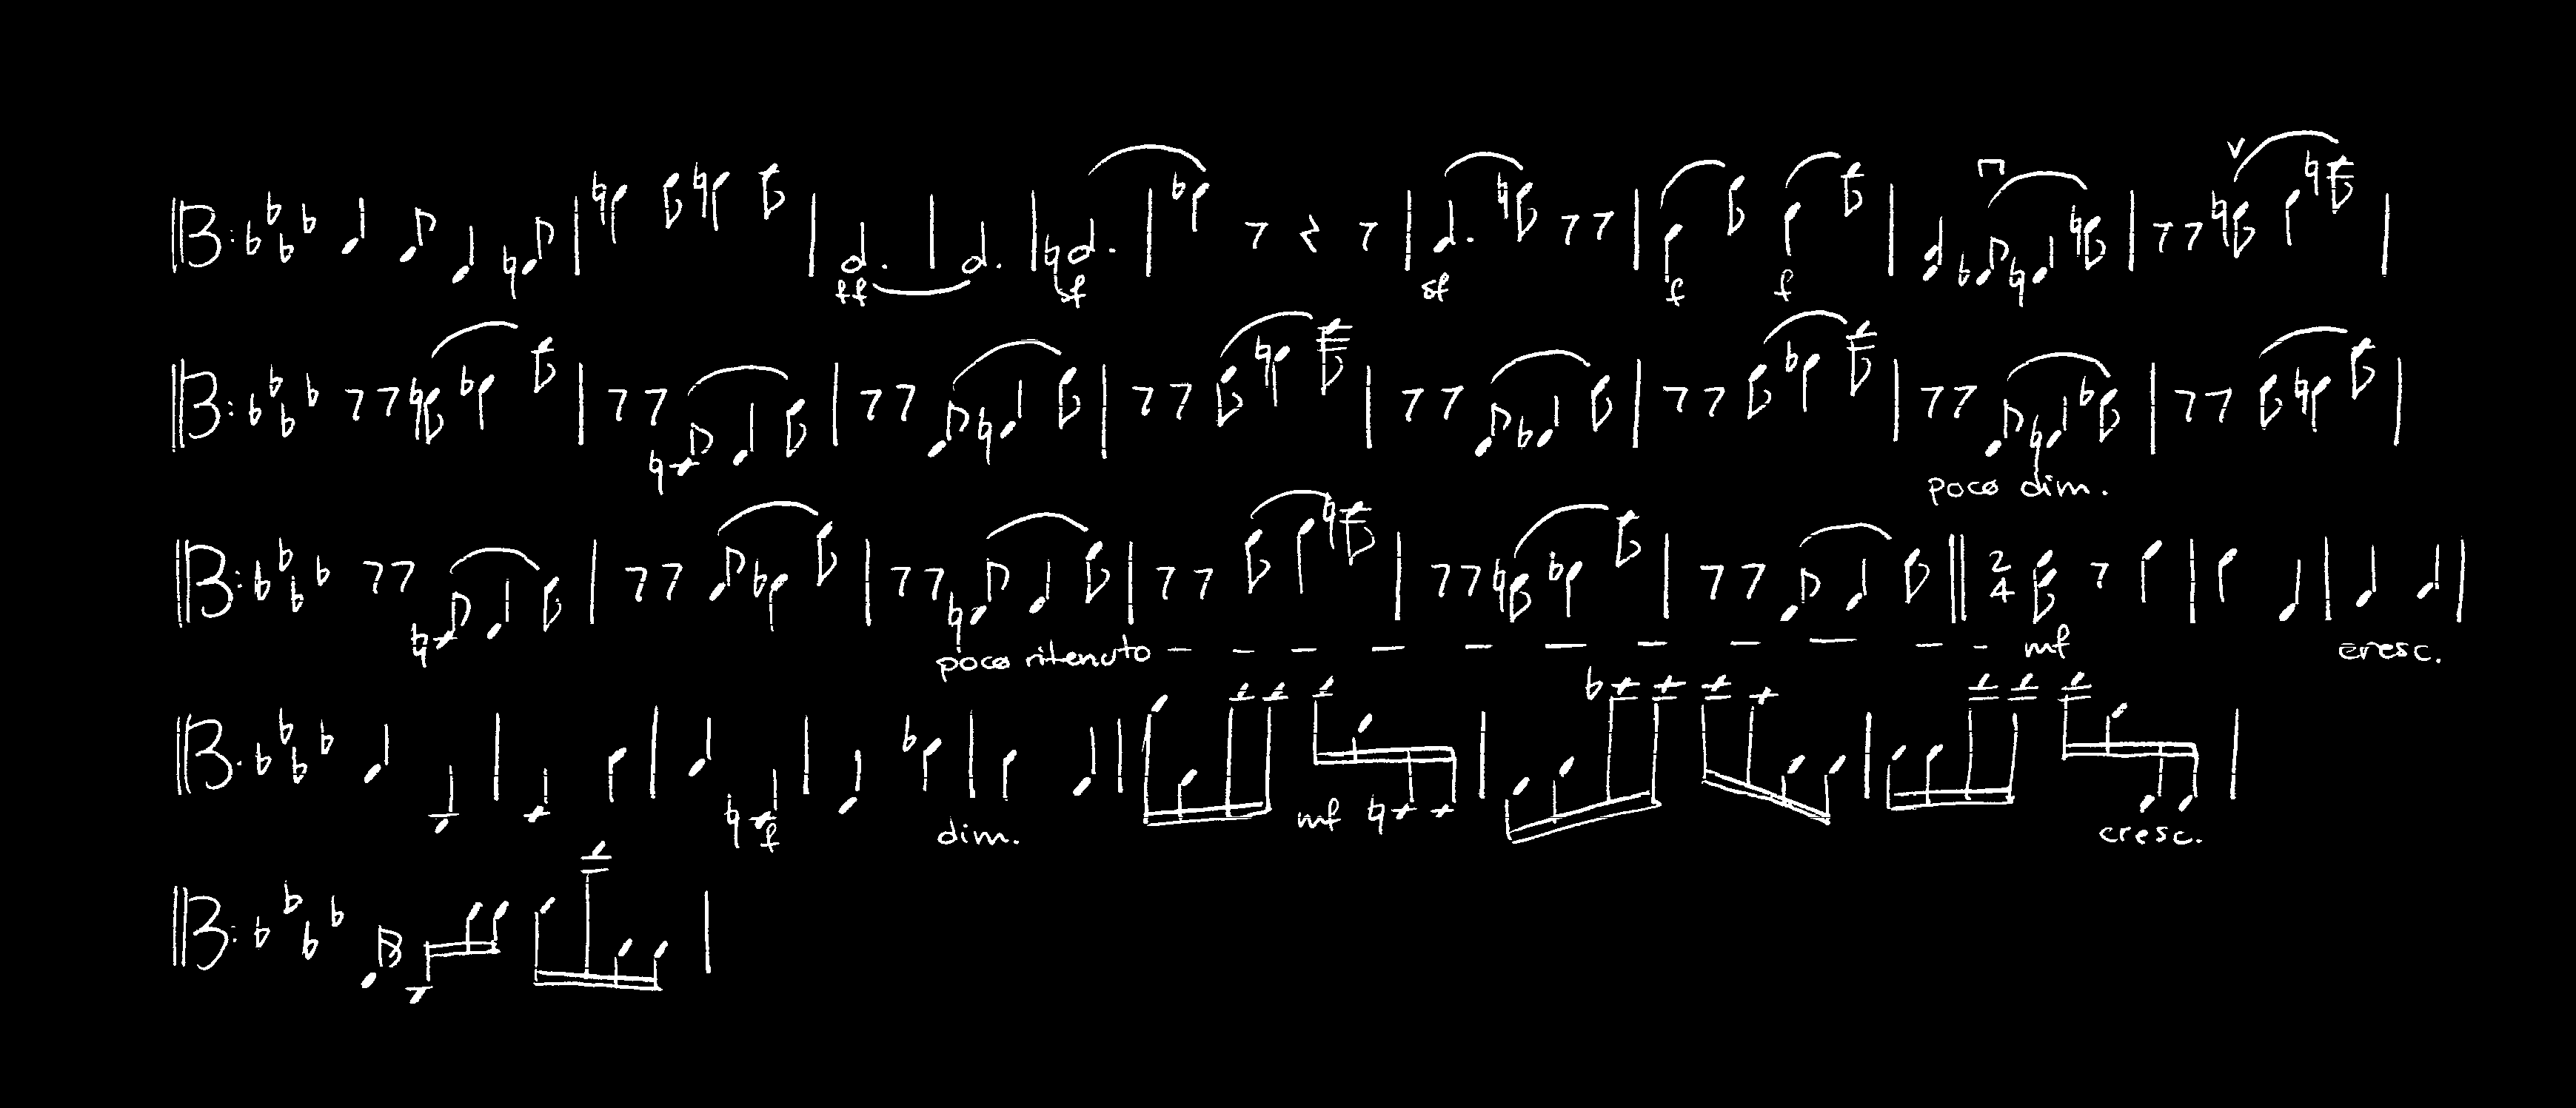 ff sf sf f f
poco dim.
2 4 poco ritenuto mf cresc.
f dim. mf cresc.